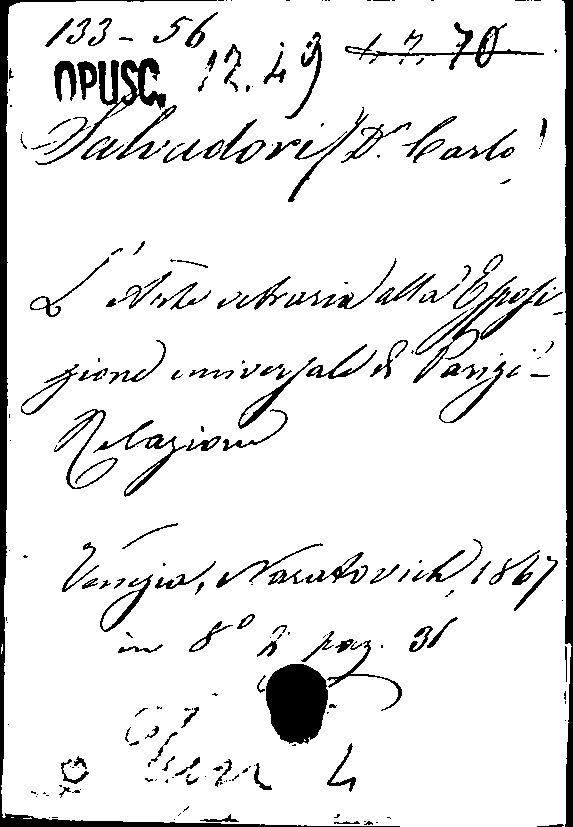 133-56
OPUSC. 12.49 17.70
Salvadori / Dr. Carlo
L'Arte vetraria alla Esposi-
zione universale di Parigi -
Relazione
Venezia, Naratovich, 1867
in 8° di pag.
4